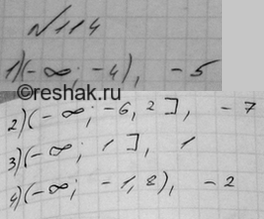 №114
1)(-∞; -4), -5
©reshak.ru
2)(-∞; -6,2], -7
3)(-∞; 1], 1
4)(-∞; -1,8), -2